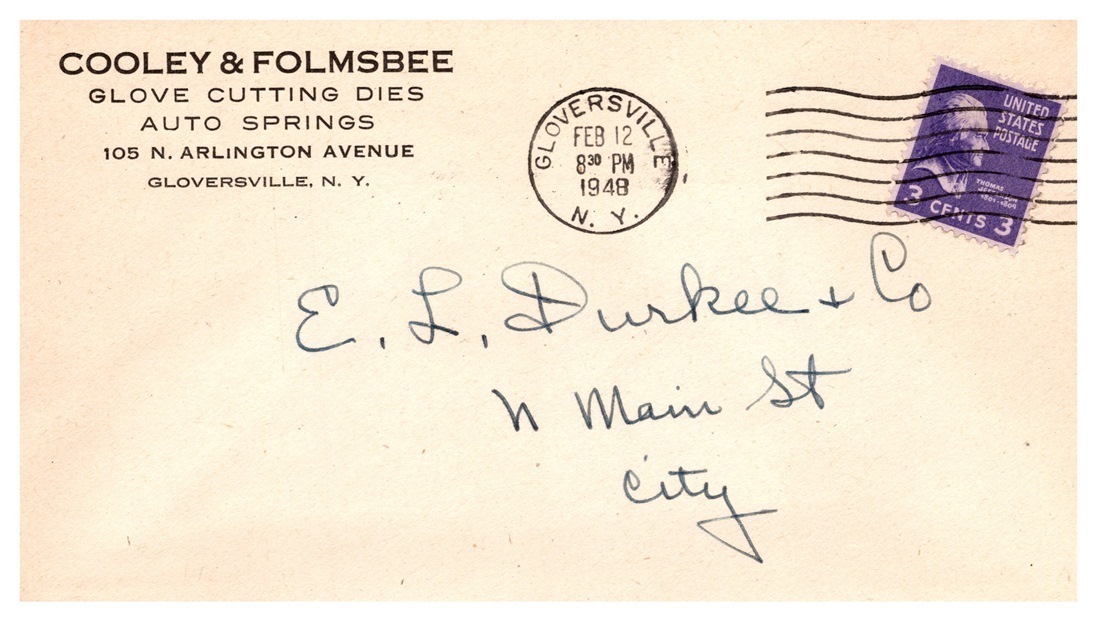 COOLEY & FOLMSBEE
GLOVE CUTTING DIES
AUTO SPRINGS
105 N. ARLINGTON AVENUE
GLOVERSVILLE, N. Y.
GLOVERSVILLE
FEB 12
8 30 PM
1948
N. Y.
UNITED
STATES
POSTAGE
THOMAS
JEFFERSON
1801-1809
3 CENTS 3
E. L. Durkee + Co
N Main St
City